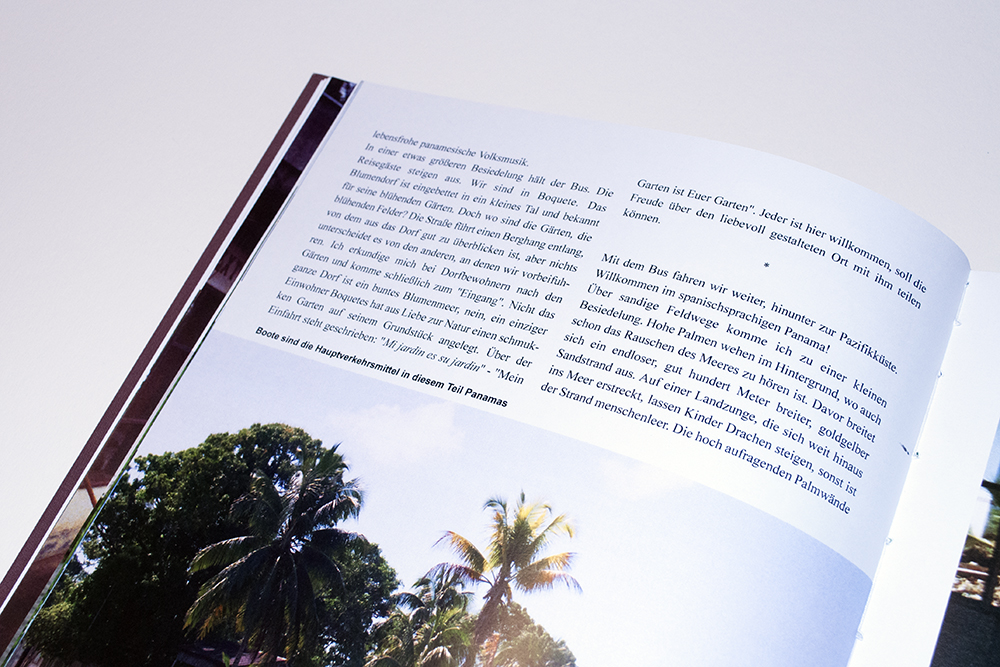 lebensfrohe panamesische Volksmusik.
In einer etwas größeren Besiedelung hält der Bus. Die
Reisegäste steigen aus. Wir sind in Boquete. Das
Blumendorf ist eingebettet in ein kleines Tal und bekannt
für seine blühenden Gärten. Doch wo sind die Gärten, die
blühenden Felder? Die Straße führt einen Berghang entlang,
von dem aus das Dorf gut zu überblicken ist, aber nichts
unterscheidet es von den anderen, an denen wir vorbeifuh-
ren. Ich erkundige mich bei Dorfbewohnern nach den
Gärten und komme schließlich zum "Eingang". Nicht das
ganze Dorf ist ein buntes Blumenmeer, nein, ein einziger
Einwohner Boquetes hat aus Liebe zur Natur einen schmuk-
ken Garten auf seinem Grundstück angelegt. Über der
Einfahrt steht geschrieben: "Mi jardin es su jardin" - "Mein
Boote sind die Hauptverkehrsmittel in diesem Teil Panamas
Garten ist Euer Garten". Jeder ist hier willkommen, soll die
Freude über den liebevoll gestalteten Ort mit ihm teilen
können.
*
Mit dem Bus fahren wir weiter, hinunter zur Pazifikküste.
Willkommen im spanischsprachigen Panama!
Über sandige Feldwege komme ich zu einer kleinen
Besiedelung. Hohe Palmen wehen im Hintergrund, wo auch
schon das Rauschen des Meeres zu hören ist. Davor breitet
sich ein endloser, gut hundert Meter breiter, goldgelber
Sandstrand aus. Auf einer Landzunge, die sich weit hinaus
ins Meer erstreckt, lassen Kinder Drachen steigen, sonst ist
der Strand menschenleer. Die hoch aufragenden Palmwände